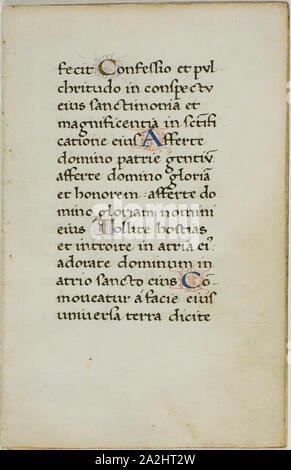 fecit Confessio et pul
chritudo in conspectu
eius sanctimonia et
magnificentia in sctifi
catione eius Afferte
domino patrie gentiū
afferte domino gloriā
et honorem: afferte do
mino gloriam nomini
eius Tollite hostias
et introite in atria ei⁹
adorate dominum in
atrio sancto eius Cō-
moveatur á facie eius
universa terra dicite
alamy
Image ID: 2A2HT2W
www.alamy.com